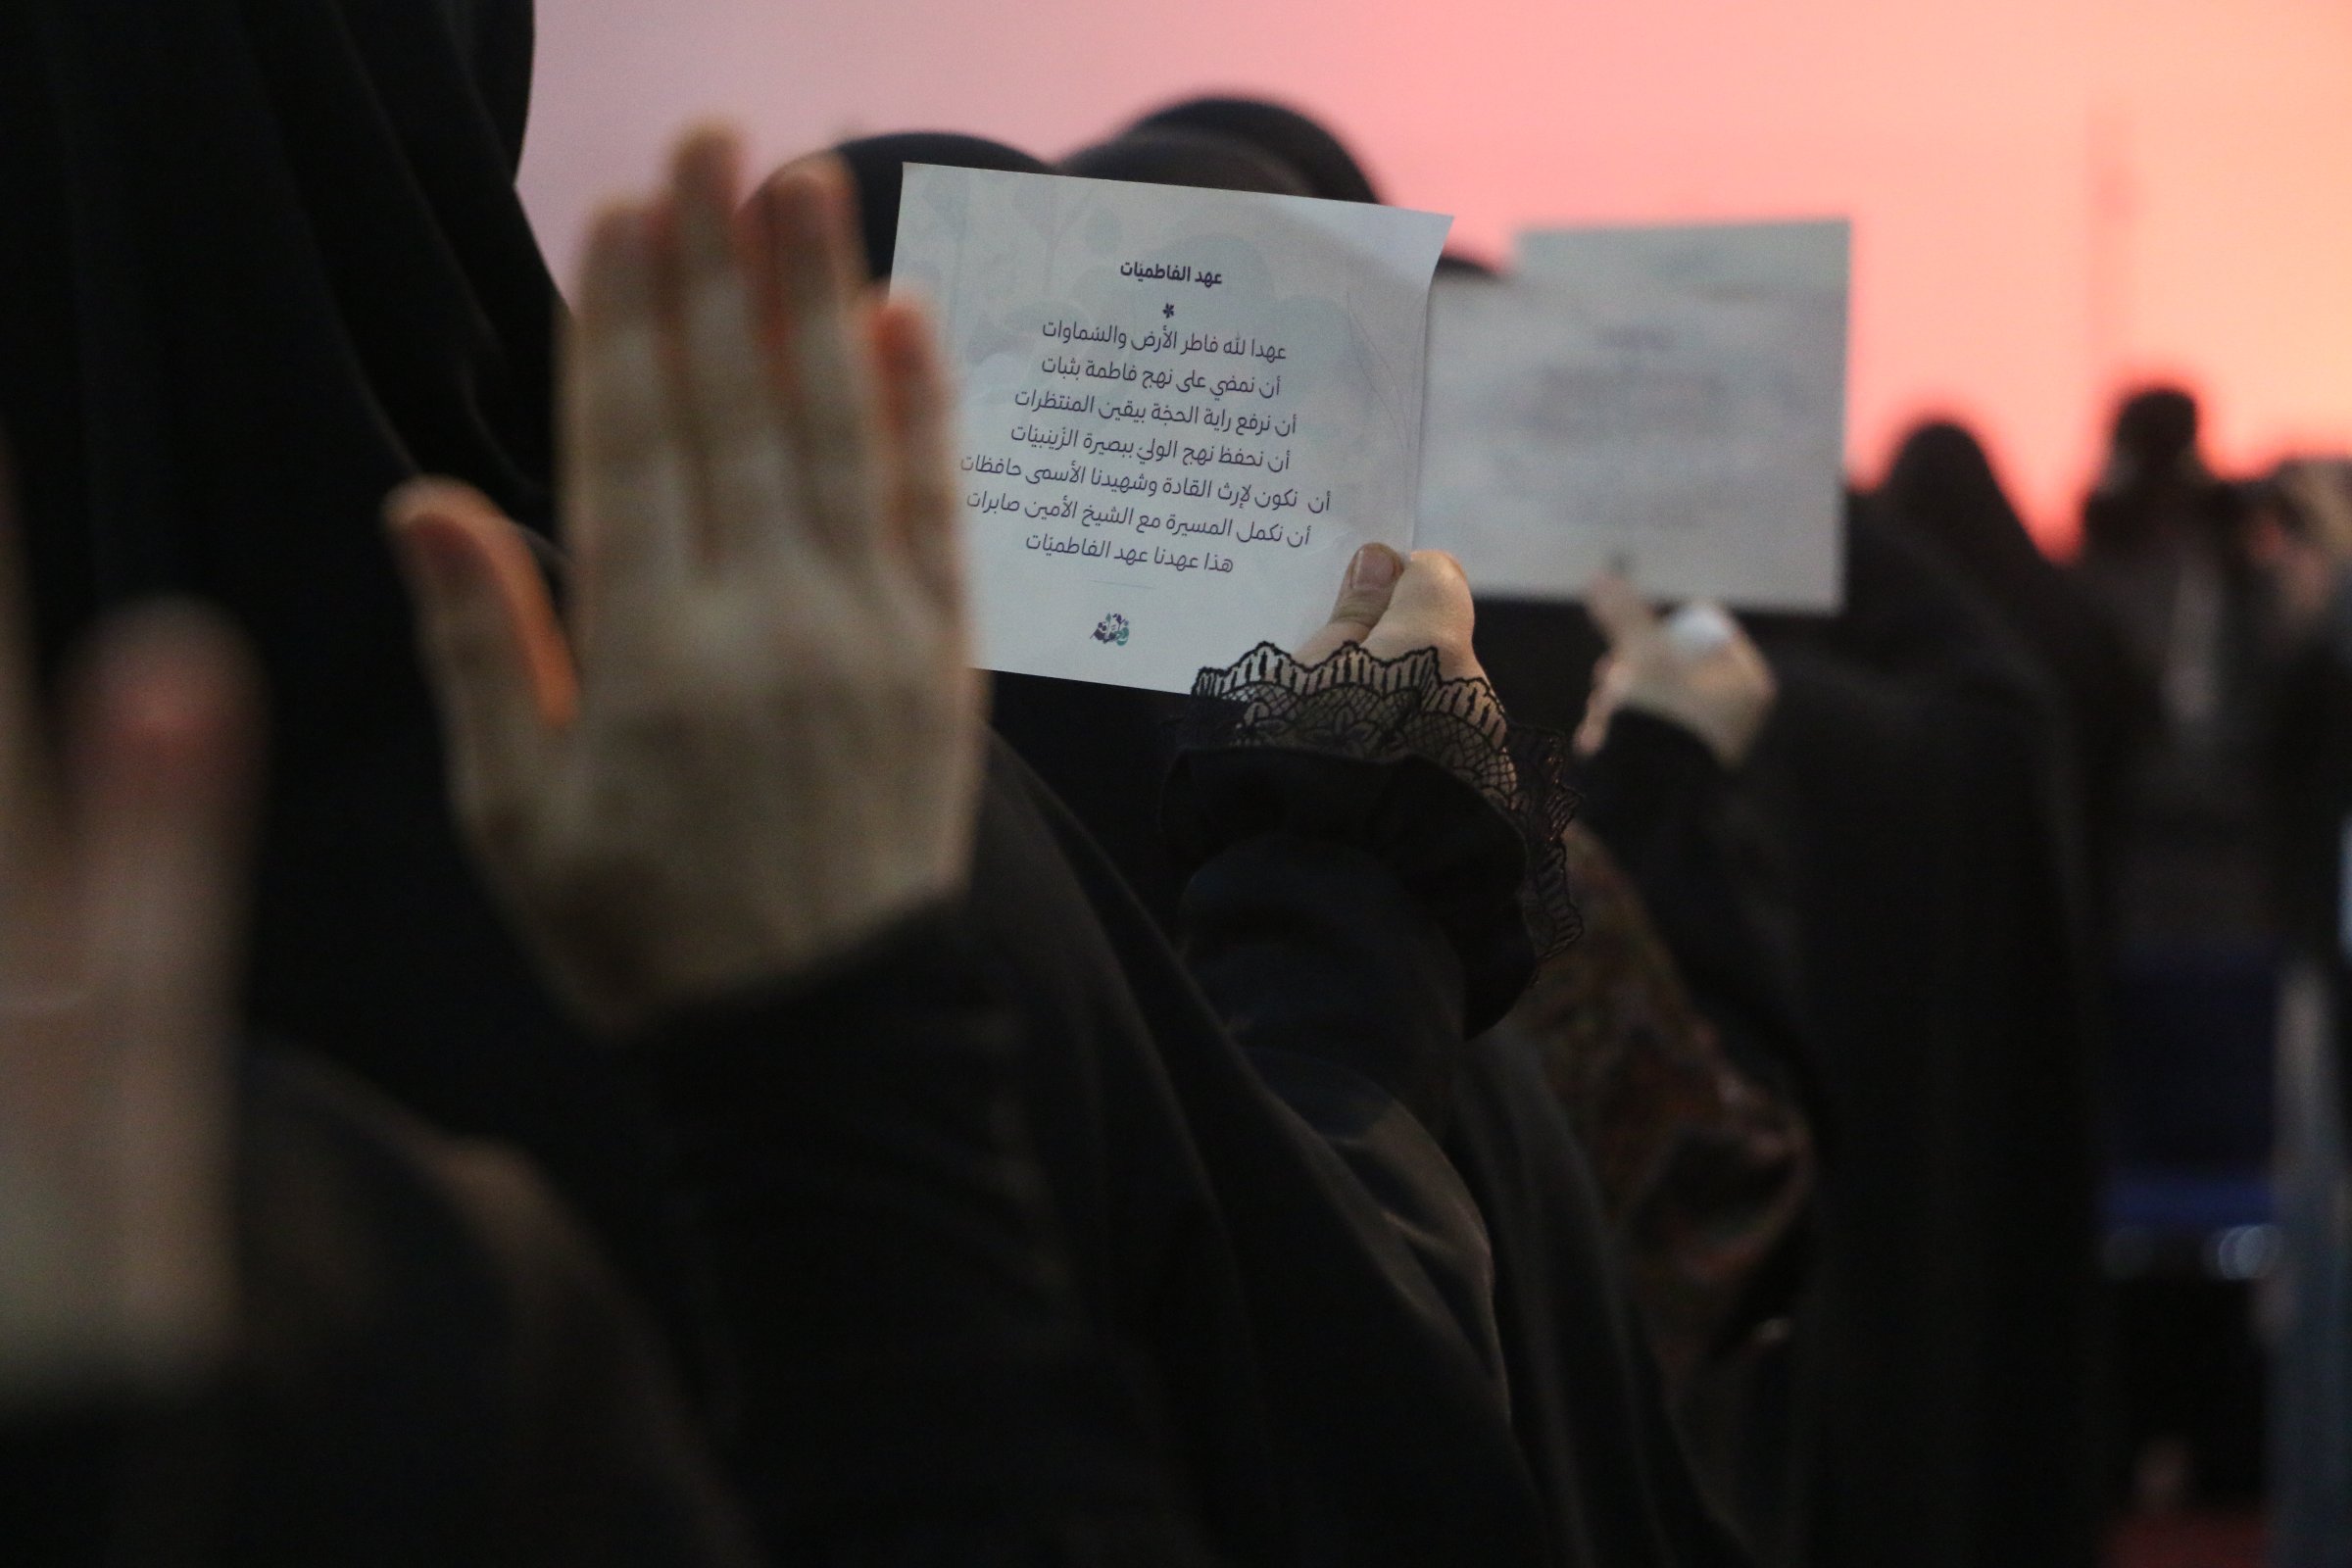 عهد الفاطميّات
عهدا لله فاطر الأرض والسّماوات
أن نمضي على نهج فاطمة بثبات
أن نرفع راية الحجّة بيقين المنتظرات
أن نحفظ نهج الوليّ ببصيرة الزّينبيّات
أن نكون لإرث القادة وشهيدنا الأسمى حافظات
أن نكمل المسيرة مع الشيخ الأمين صابرات
هذا عهدنا عهد الفاطميّات